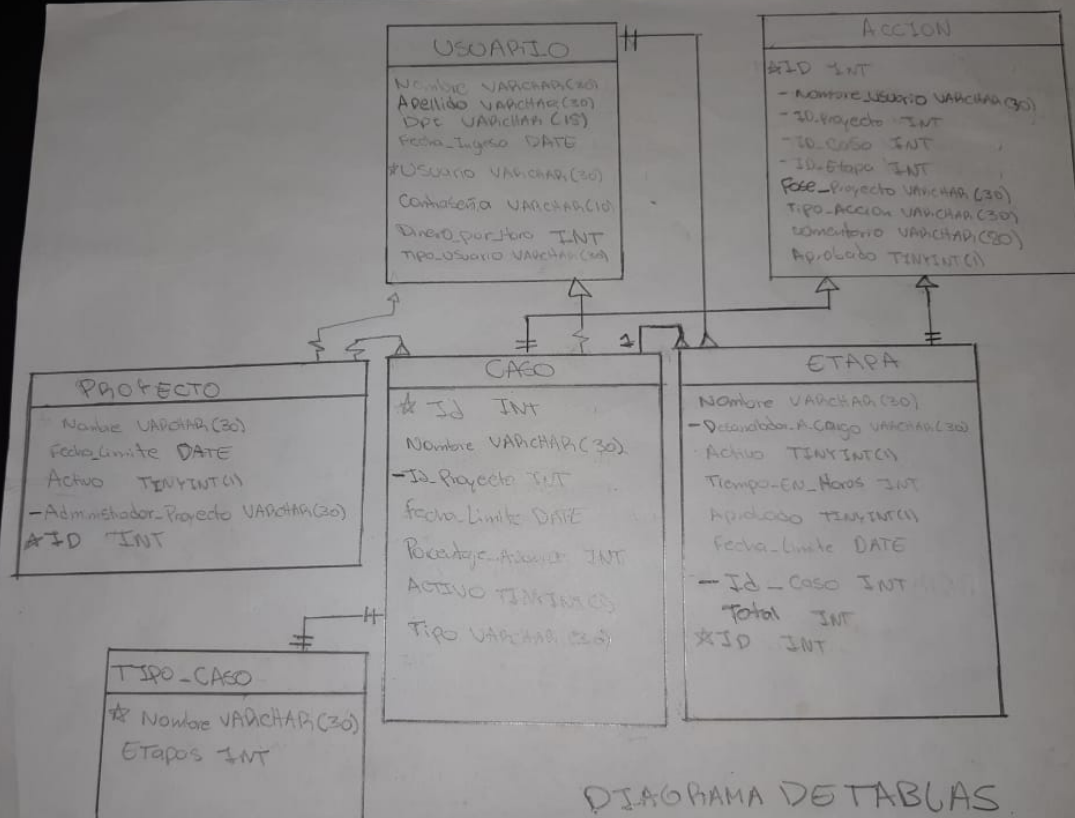 USUARIO
Nombre VARCHAR(30)
Apellido VARCHAR(30)
Dpt VARCHAR (15)
Fecha_Ingreso DATE
☆Usuario VARCHAR(30)
Contraseña VARCHAR(10)
Dinero_por_Hora INT
Tipo_Usuario VARCHAR(30)
ACCION
☆ID INT
- Nombre_Usuario VARCHAR(30)
- ID_Proyecto INT
- ID_Caso INT
- ID_Etapa INT
Fase_Proyecto VARCHAR(30)
Tipo_Accion VARCHAR(30)
Comentario VARCHAR(80)
Aprobado TINYINT(1)
PROYECTO
Nombre VARCHAR(30)
Fecha_Limite DATE
Activo TINYINT(1)
-Administrador_Proyecto VARCHAR(30)
☆ID INT
CASO
☆ Id INT
Nombre VARCHAR(30)
-Id_Proyecto INT
Fecha_Limite DATE
INT
ACTIVO TINYINT(1)
Tipo VARCHAR(30)
1
ETAPA
Nombre VARCHAR(30)
VARCHAR(30)
Activo TINYINT(1)
Tiempo_EN_Horas INT
Aprobado TINYINT(1)
Fecha_Limite DATE
- Id_Caso INT
Total INT
☆ID INT
TIPO_CASO
☆ Nombre VARCHAR(30)
Etapas INT
DIAGRAMA DE TABLAS